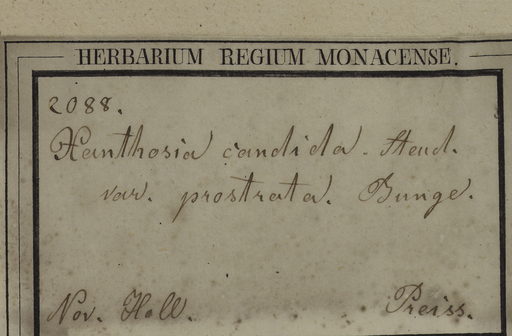 HERBARIUM REGIUM MONACENSE.
2088.
Xanthosia candida. Steud.
var. prostrata. Bunge.
Nov. Holl. Preiss.